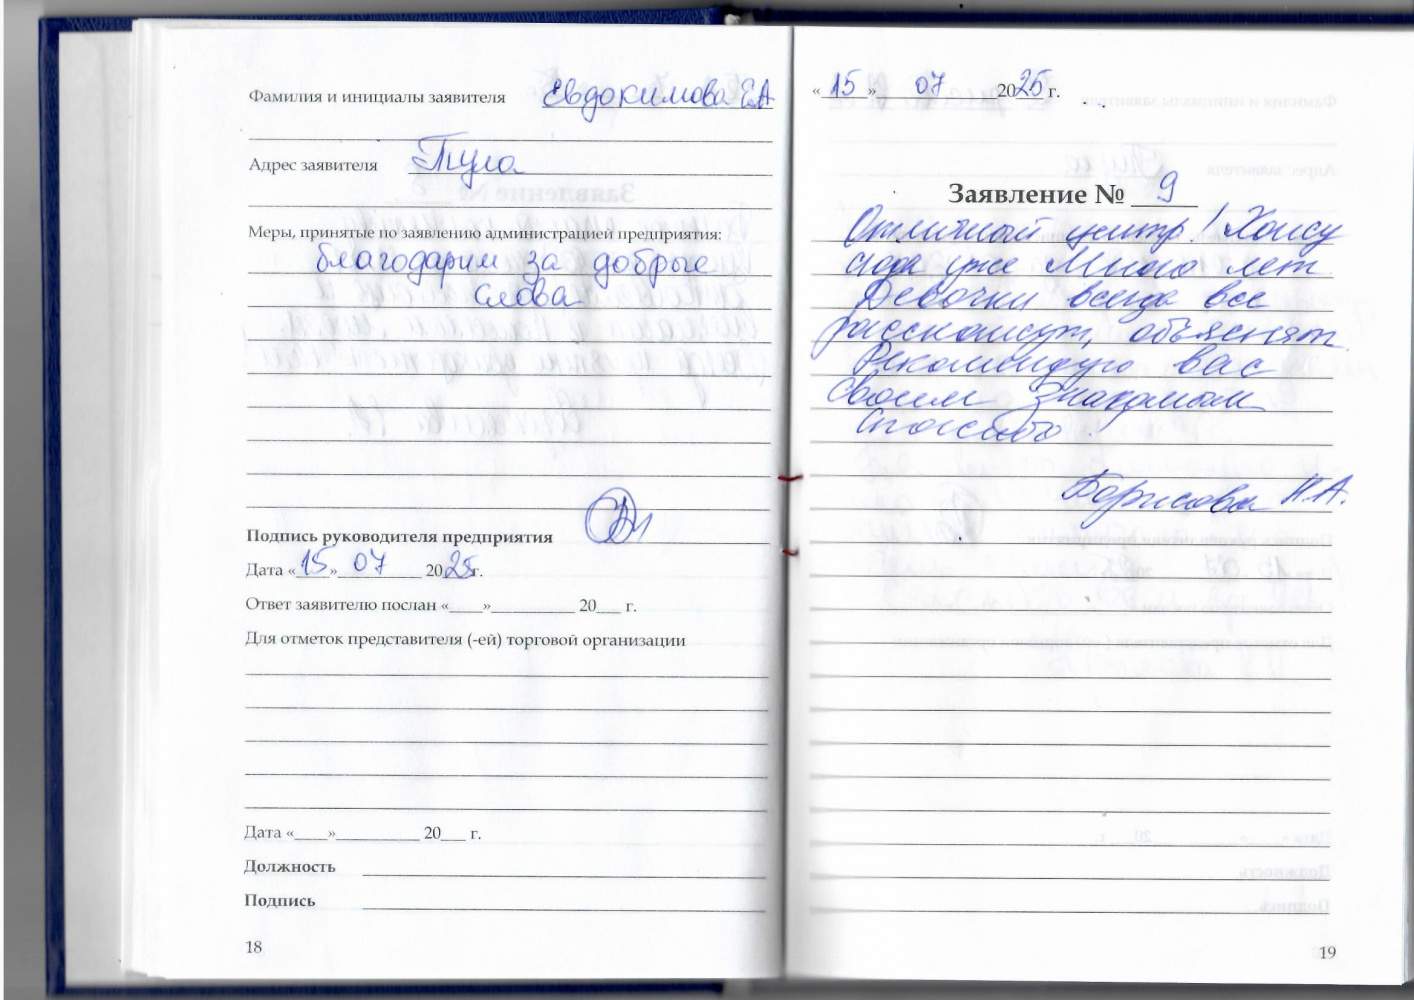 Фамилия и инициалы заявителя Евдокимова Е.А
Адрес заявителя Тула
Меры, принятые по заявлению администрацией предприятия:
благодарим за добрые
слова
Подпись руководителя предприятия
Дата «15» 07 2025г.
Ответ заявителю послан «____»__________ 20___ г.
Для отметок представителя (-ей) торговой организации
Дата «____»__________ 20___ г.
Должность
Подпись
18
«15» 07 2025г.
Заявление № 9
Отличный центр! Хожу
сюда уже много лет
Девочки всегда все
расскажут, объяснят
Рекомендую вас
своим знакомым
Спасибо.
Борисова Н.А.
19